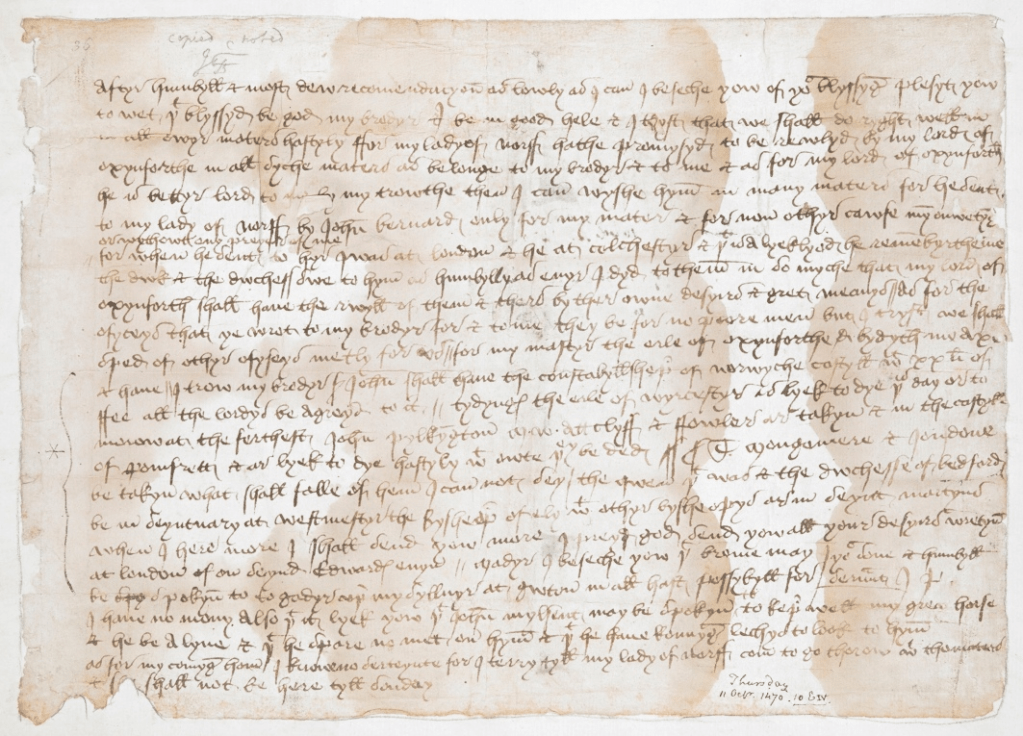 36
copied & noted
Aftyr humbyll & most dew recomendacyon as lowly as I can I beseche yow of yor blyssyng plesyt yow
to wet yt blyssyd be god my brodyr & I be in good hele & I tryst that we shall do ryght well in
all owyr maters hastyly ffor my lady of Norff hathe promysyd to be rewlyd by my lord of
Oxynforthe in all syche maters as belonge to my brodyr & to me & as for my lord of Oxynforthe
he is bettyr lord to me by my trowthe then I can wyshe hym in many maters for he sente
to my lady of Norff by John Bernard only for my mater & for non othyr cawse my onwetyng
or wythowt any preyer of me
for when he sent to hyr I was at london & he at colchestyr & yt is a lyeklyod he remembyrthe me
the dwk & the dwchess swe to hym as humbylly as evyr I dyd to them in so myche that my lord of
Oxynforth shall have the rwyll of them & thers by ther owne desyirs & gret meanys As for the
ofyceys that ye wrot to my brodyr for & to me they be for no poore men but I tryst we shall
sped of othyr ofyseys metly for vs for my mastyr the erle of Oxynforthe bydyth me axe
& have I trow my brodyr Sr John shall have the constabyllshep of Norwyche castyll wt xx li of
ffee all the lordys be agreyd to it tydyngs the erle of wyrcestyr is lyek to dye ys day or to
morow at the ferthest John Pylkyngton Mr W at Clyff & ffowler ar takyn & in the castyll
of Pomfrett & ar lyek to dye hastyly wt owte yey be ded Sr T Mongomere & Joudone
be takyn what shall falle of hem I can not sey the qwen yt was & the dwchesse of Bedford
be in seyntuary at westmestyr the Bysheop of Ely wt othyr bysheopys ar in Seynt Martyns
when I here more I shall send yow more I prey god send yow all your desyirs wretyn
at london on seynt Edwards evyn Modyr I beseche yow yt Brome may
yor sone & humbyll
servant J P
be spokyn to to gadyr up my sylvyr at Gwton in all hast possybyll for
I have no mony Also yt it lyek yow yt John Mylsent may be spokyn to to kep well my grey horse
& he be alyve & yt he spare no met on hym & yt he have konnyng lechys to look to hym
as for my comyng hom I knowe no serteynte for I terry tyll my lady of Norff com to go thorow wt the maters
& she shall not be here tyll sonday
Thursday
11 Octr. 1470. 10 E. IV.